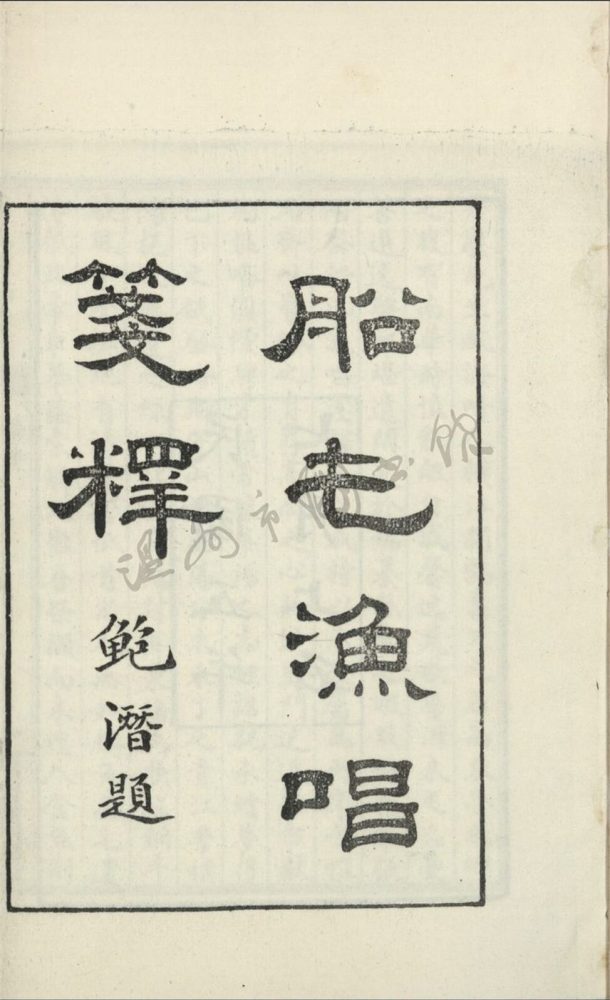 船屯漁唱
箋釋
鮑潛題
温州市图书馆